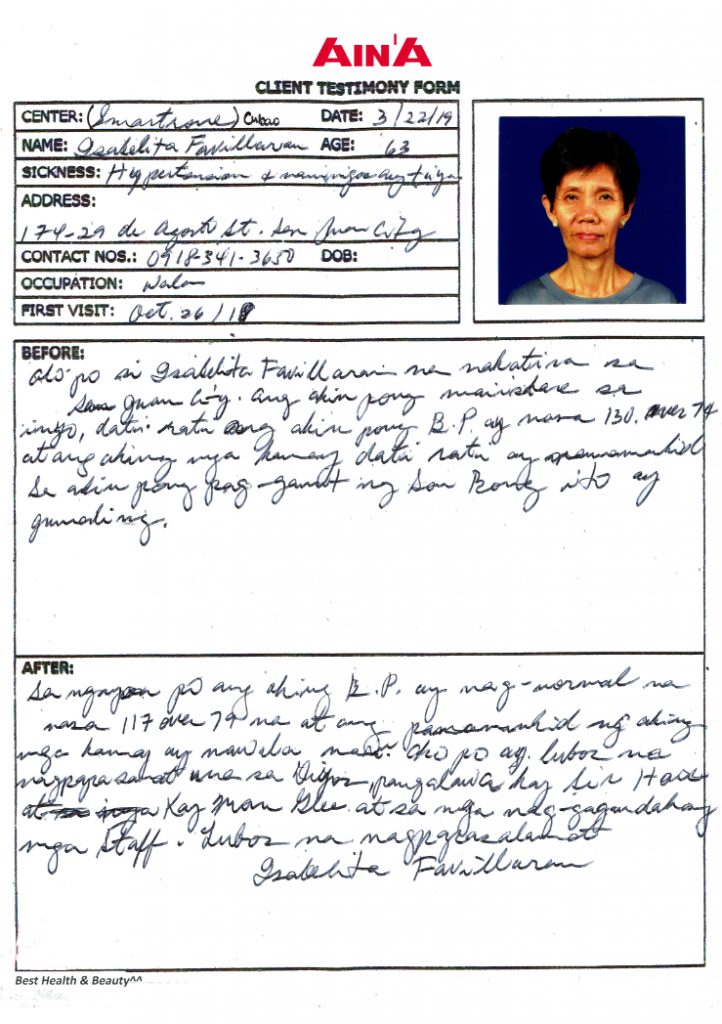 AIN'A
CLIENT TESTIMONY FORM
CENTER: (Smartzone) Cubao DATE: 3/22/19
NAME: Isabelita Favillaran AGE: 63
SICKNESS: Hypertension &
ADDRESS:
174-29 de Agosto St. San Juan City
CONTACT NOS.: 0918-341-3650 DOB:
OCCUPATION: Wala
FIRST VISIT: Oct. 26/18
BEFORE:
ako po si Isabelita Favillaran na nakatira sa
San Juan City. ang akin pong maisishare sa
inyo, dati rati ang akin pong B.P. ay nasa 130 over 74
at ang aking mga kamay dati rati ay namamanhid
Sa akin pong pag-gamit ng Son Bong ito ay
gumaling.
AFTER:
Sa ngayon po ang aking B.P. ay nag-normal na
nasa 117 over 79 na at ang pamamanhid ng aking
mga kamay ay nawala na. Ako po ay lubos na
nagpapasamat una sa Diyos, pangalawa kay Sir
at Kay Mam Glee at sa mga nag-gagandahang
mga Staff. Lubos na nagpapasalamat
Isabelita Favillaran
Best Health & Beauty^^